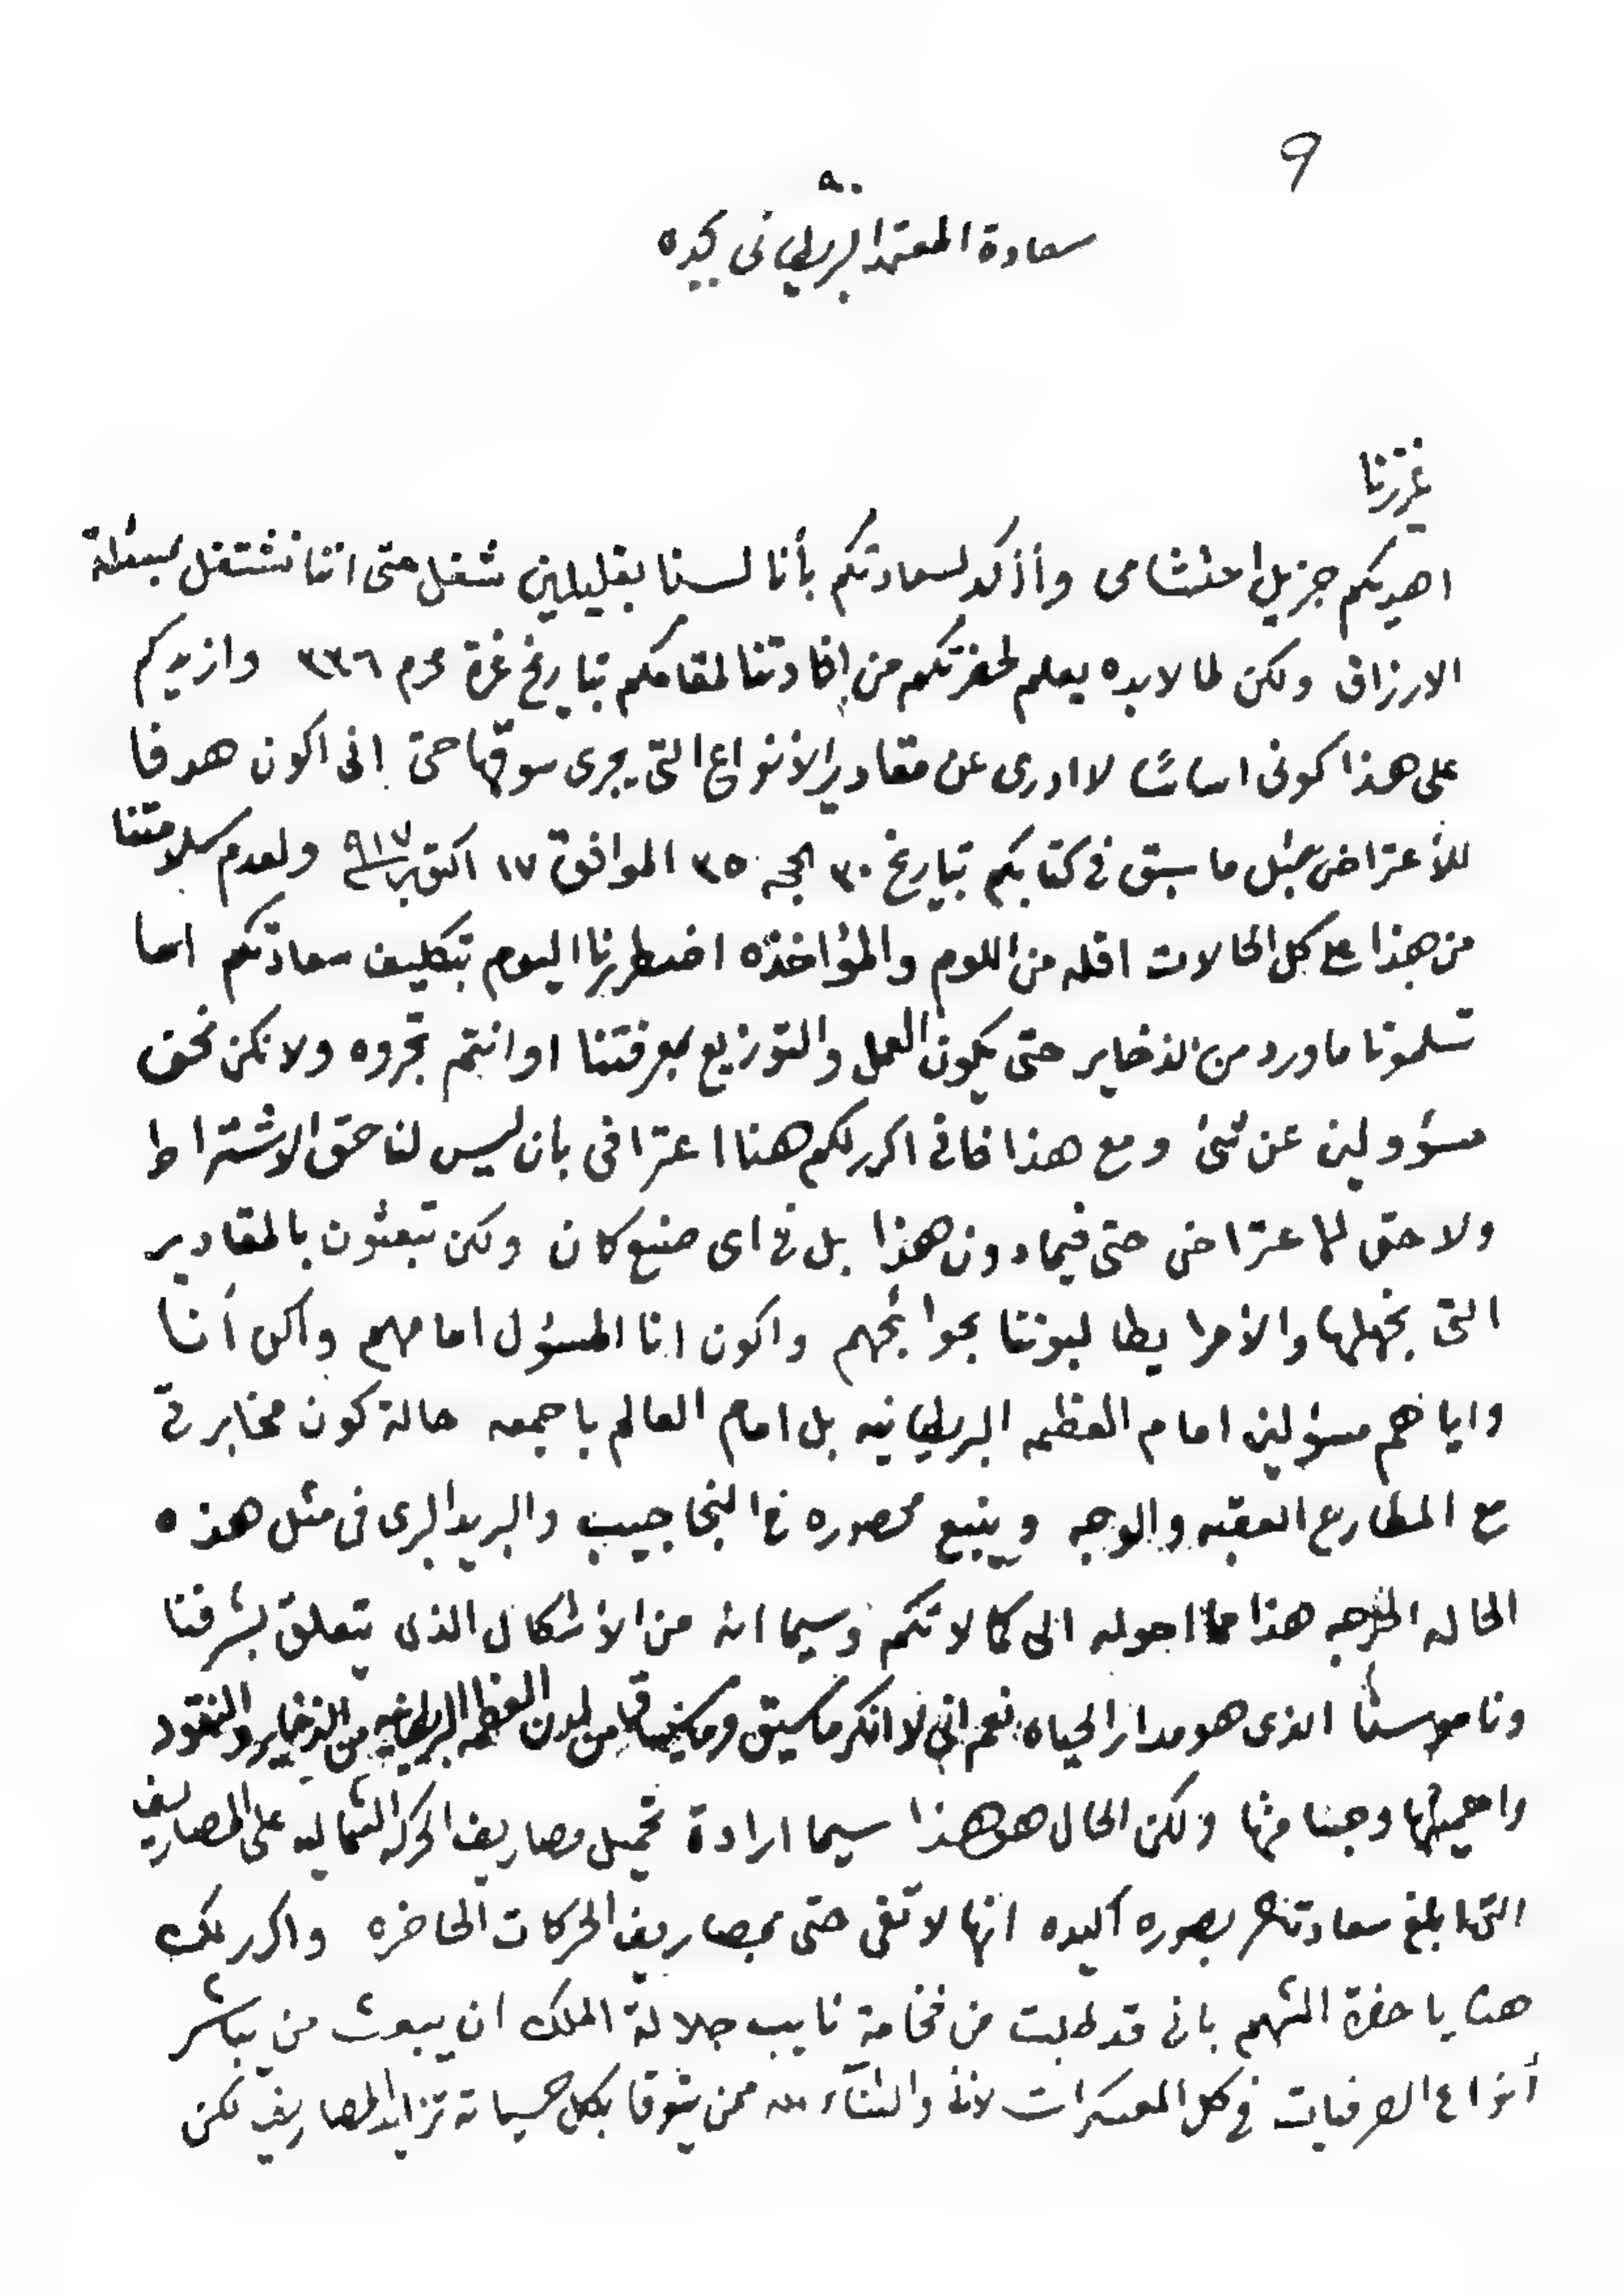 9
٩٠
سعادة المعتمد البريطانى بجده
عزيزنا
اهديكم جزيل احتشامى وأؤكد لسعادتكم بأنا لسنا بقليلين شغل حتى اننا نشتغل بمسئلة
الارزاق ولكن لما لابده يعلم لحضرتكم من إفادتنا لمقامكم بتاريخ غرة محرم ٣٣٦ وازيدكم
على هذا كونى اساسًا لا ادرى عن مقادير الأنواع التى يجرى سوقها حتى انى اكون هدفا
للأعتراض بمثل ما سبق فى كتابكم بتاريخ ٣٠ الحجه ٣٥ الموافق ١٧ اكتوبر ٩١٧ ولعدم سلامتنا
من هذا على كل الحالات اقله من اللوم والمؤاخذه اضطررنا اليوم بتكليف سعادتكم اما
تسلمونا ما ورد من الذخاير حتى يكون العمل والتوزيع بمعرفتنا او انتم تجروه ولا نكن نحن
مسؤولين عن شئ ومع هذا فانى اكرر لكم هنا اعترافى بان ليس لنا حق الاشتراط
ولا حق لاعتراض حتى فيما دون هذا بل فى اى صنيع كان ولكن تبعثون بالمقادير
التى نجهلها والأمرا يطالبوننا بحوائجهم واكون انا المسؤل امامهم واكن أنا
واياهم مسؤلين امام العظمه البريطانيه بل امام العالم باجمعه حالة كون مخابرتى
مع المطارع العقبه والوجه وينبع محصوره فى النجاجيب والبريد البرى فى مثل هذه
الحاله الحرجه هذا مما احوله الى كمالاتكم وسيما انه من الأشكال الذى يتعلق بشرفنا
وناموسنا الذى هو مدار الحياه نعم انى لا انكر ماسبق وماسيساق من لدن العظمه البريطانيه من الذخاير والنقود
واهميتها وجسامتها ولكن الحال هو هذا سيما ارادة تحميل مصاريف الحركه الشماليه على المصاريف
التى ابلغ سعادتكم بصوره اكيده انها لا تفى حتى بمصاريف الحركات الحاضره واكرر لك
هنا يا حضرة الشهم بانى قد طلبت من فخامة نايب جلالة الملك ان يبعث من يباشر
أنواع الصرفيات فى كل المعسكرات لأنى والثنآء لله ممن يتوقا بكل حسياته تزايد المصاريف لكن